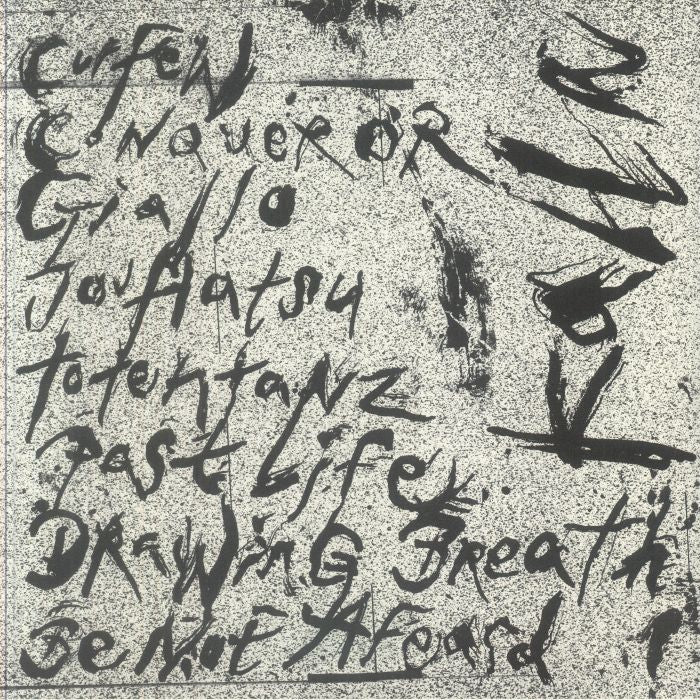 Curfew
Conqueror
Giallo
Jouhatsu
totentanz
Past Life
Drawing Breath
Be Not Afeard